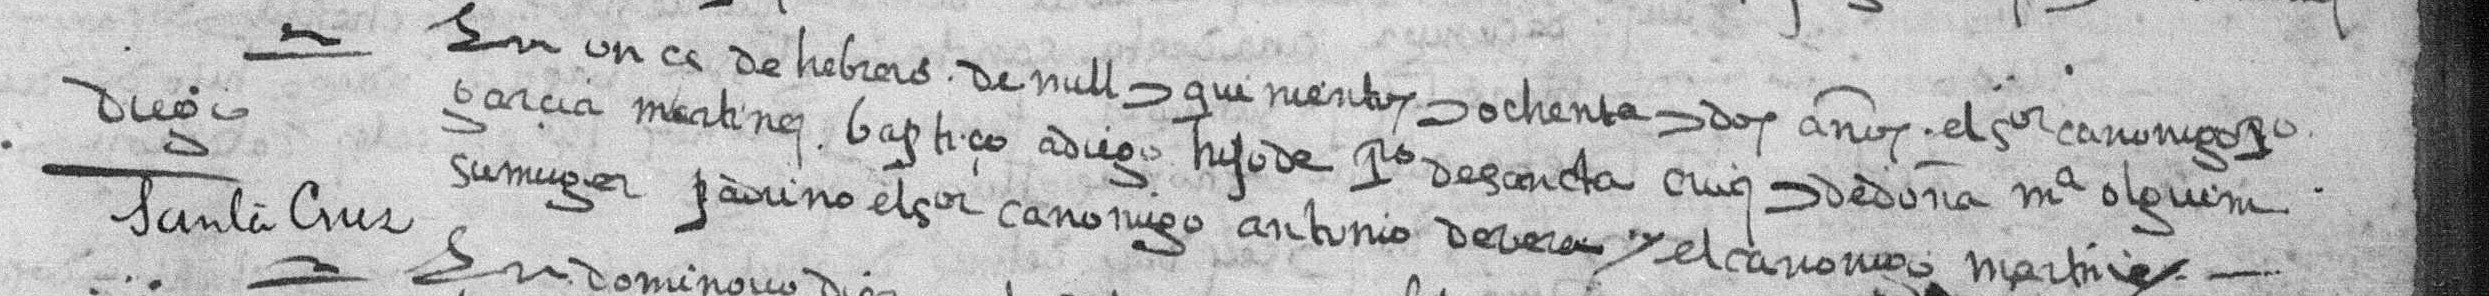 En once de hebrero de mill y quinientos y ochenta y dos años. el Sor canonigo Po
Diego
garcia martinez baptiço a diego hijo de Po de sancta cruz y de doña ma olguin
su muger padrino el sor canonigo antonio de vera y el canonigo martinez
Santa Cruz
En domingo